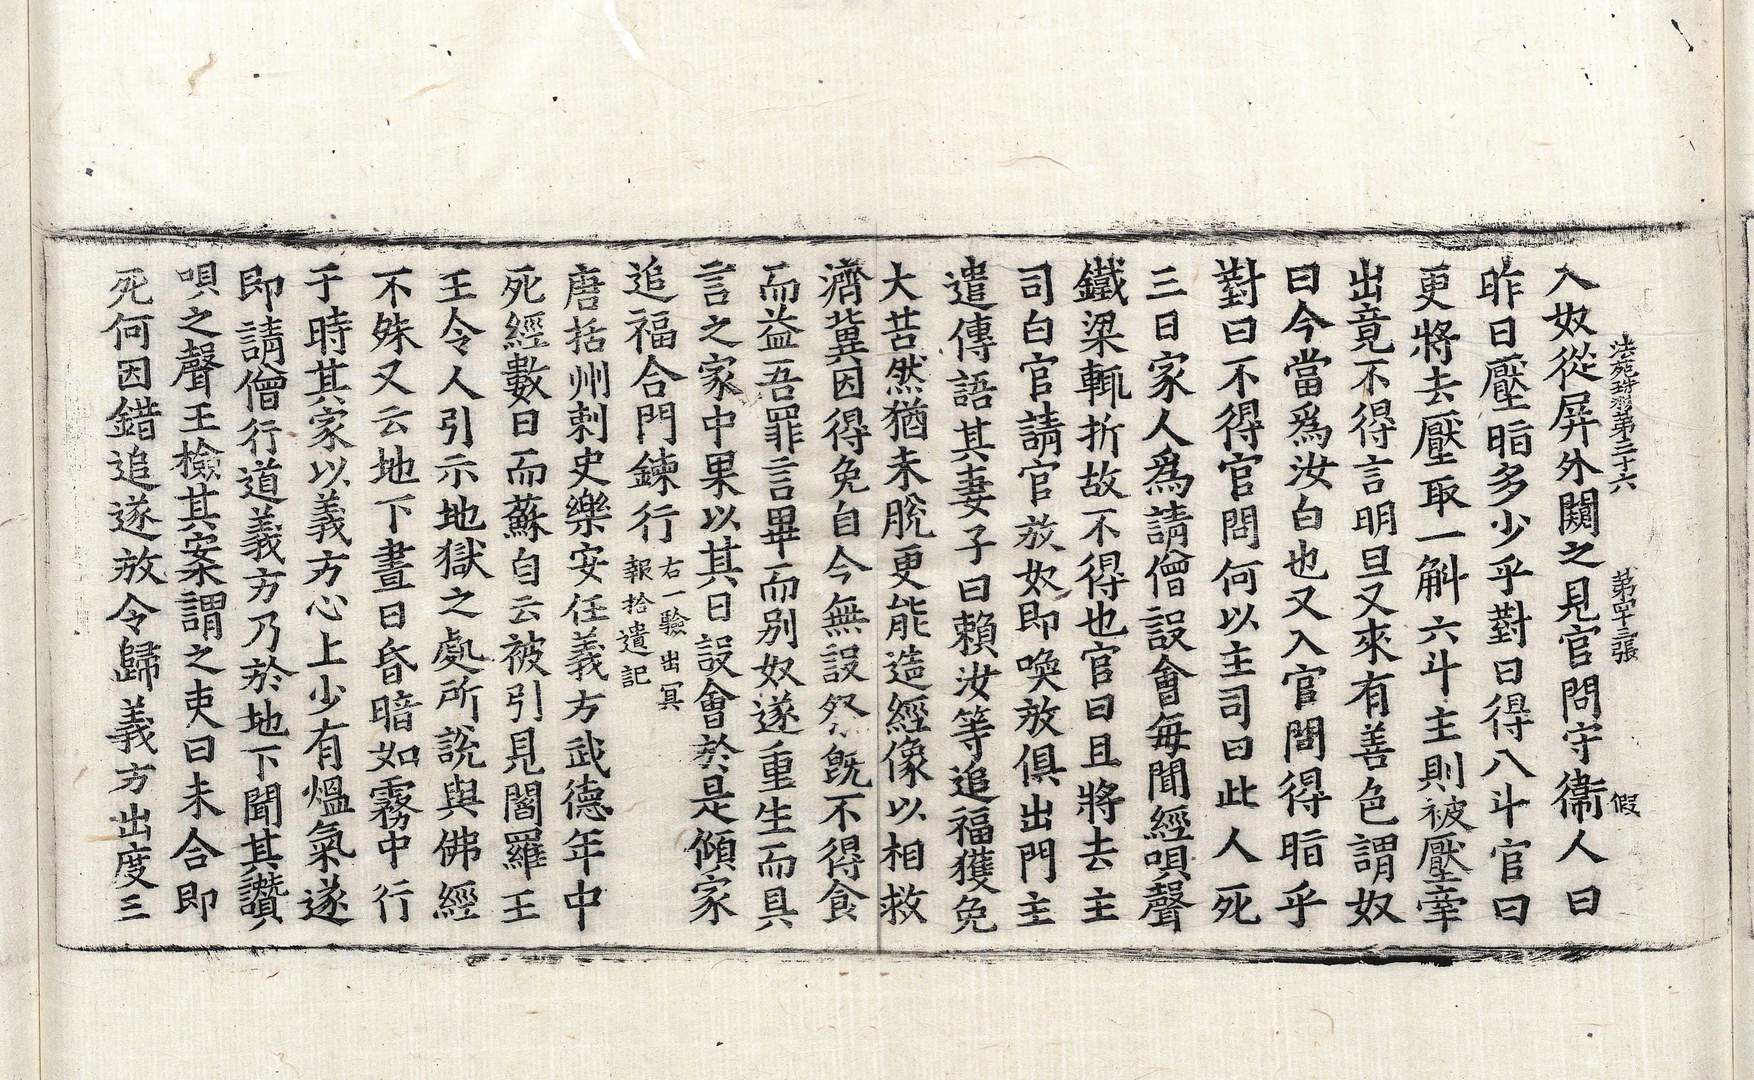 法苑珠林第三十六 第四十三張 假
入奴從屏外闚之見官問守衞人曰
昨日壓脂多少乎對曰得八斗官曰
更將去壓取一斛六斗主則被壓牽
出竟不得言明旦又來有善色謂奴
曰今當爲汝白也又入官問得脂乎
對曰不得官問何以主司曰此人死
三日家人爲請僧設會每聞經唄聲
鐵梁輒折故不得也官曰且將去主
司白官請官放奴即喚放俱出門主
遣傳語其妻子曰賴汝等追福獲免
大苦然猶未脫更能造經像以相救
濟冀因得免自今無設祭旣不得食
而益吾罪言畢而別奴遂重生而具
言之家中果以其日設會於是傾家
追福合門鍊行右一驗出冥報拾遺記
唐括州刺史樂安任義方武德年中
死經數日而蘇自云被引見閻羅王
王令人引示地獄之處所說與佛經
不殊又云地下晝日昏暗如霧中行
于時其家以義方心上少有熅氣遂
即請僧行道義方乃於地下聞其讚
唄之聲王檢其案謂之吏曰未合即
死何因錯追遂放令歸義方出度三